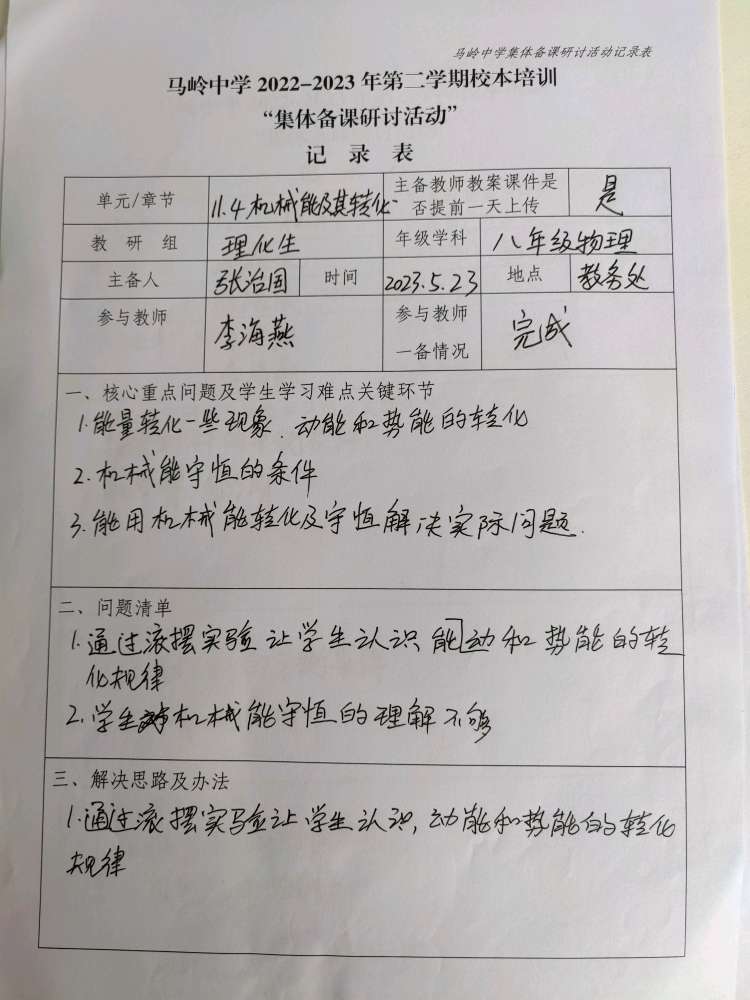 马岭中学集体备课研讨活动记录表
马岭中学 2022-2023 年第二学期校本培训
“集体备课研讨活动”
记 录 表
单元/章节 11.4 机械能及其转化 主备教师教案课件是否提前一天上传 是
教 研 组 理化生 年级学科 八年级物理
主备人 张治国 时间 2023.5.23 地点 教务处
参与教师 李海燕 参与教师一备情况 完成
一、核心重点问题及学生学习难点关键环节
1.能量转化一些现象.动能和势能的转化
2.机械能守恒的条件
3.能用机械能转化及守恒解决实际问题.
二、问题清单
1.通过滚摆实验让学生认识能动和势能的转
化规律
2.学生对机械能守恒的理解不够
三、解决思路及办法
1.通过滚摆实验让学生认识,动能和势能的转化
规律